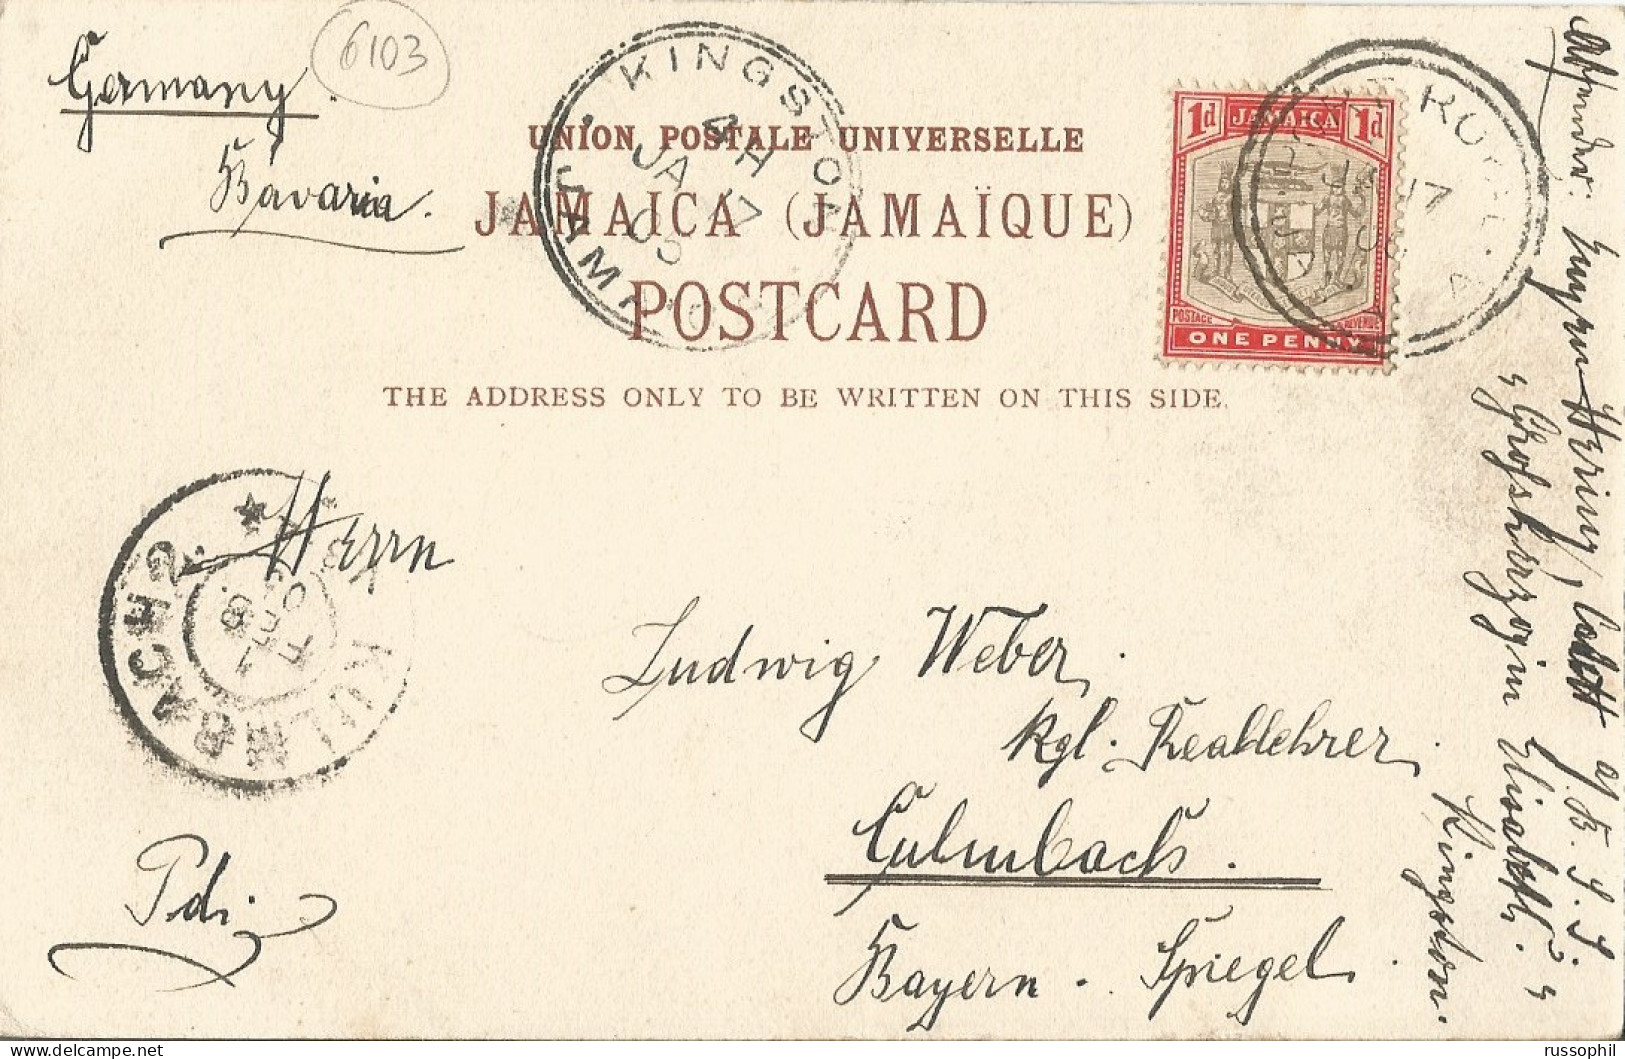 Germany
Bavaria.
6103
UNION POSTALE UNIVERSELLE
JAMAICA (JAMAÏQUE)
POSTCARD
THE ADDRESS ONLY TO BE WRITTEN ON THIS SIDE.
KINGSTON
JA 17
1d JAMAICA 1d
POSTAGE REVENUE
ONE PENNY
PORT ROYAL
KULMBACH 2.
FEB
Herrn
Ludwig Weber.
Kgl. Reallehrer.
Culmbach.
Bayern. Spiegel.
Absender: Hering,
Grossherzogin Elisabeth."
Kingston.
russophil